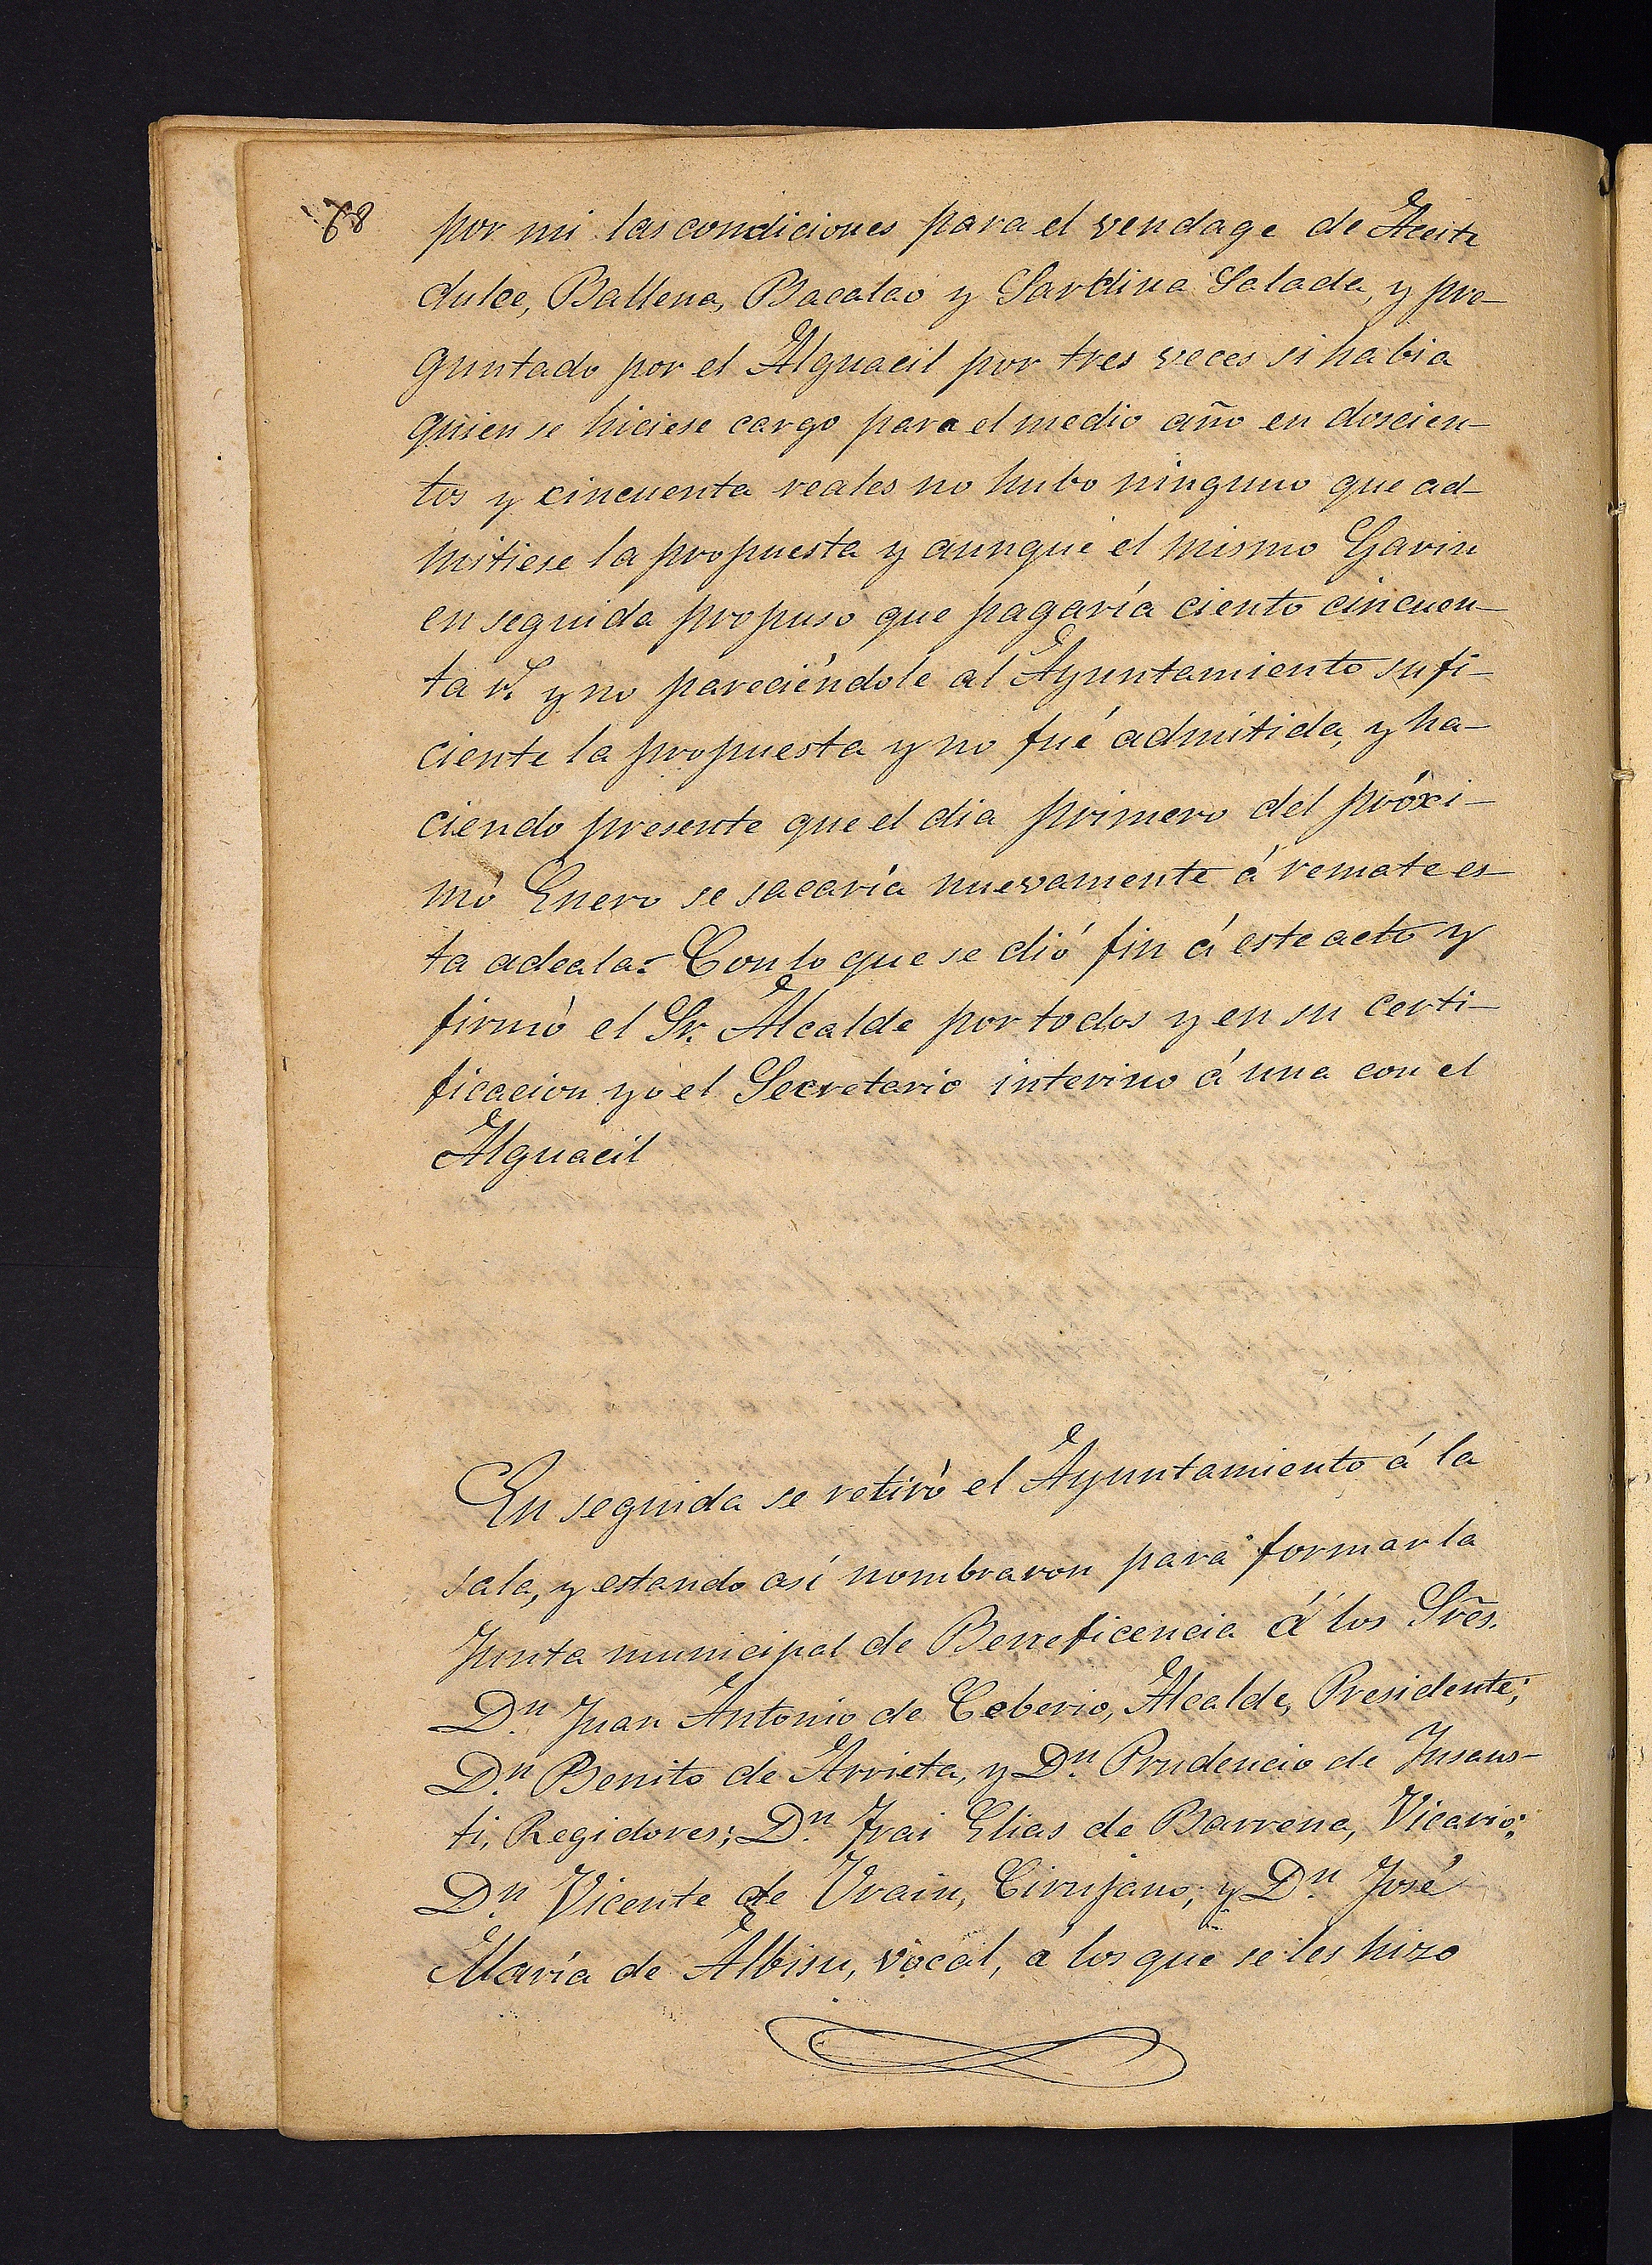 68
por mi las condiciones para el vendage de Aceite
dulce, Ballena, Bacalao y Sardina Salada, y pre-
guntado por el Alguacil por tres veces si habia
quien se hiciese cargo para el medio año en doscien-
tos y cincuenta reales no hubo ninguno que ad-
mitiese la propuesta y aunque el mismo Garin
en seguida propuso que pagaría ciento cincuen-
ta r.ˢ y no pareciéndole al Ayuntamiento sufi-
ciente la propuesta y no fué admitida, y ha-
ciendo presente que el dia primero del próxi-
mo Enero se sacaría nuevamente á remate es-
ta adeala= Con lo que se dió fin á este acto y
firmó el Sr. Alcalde por todos y en su certi-
ficacion yo el Secretario interino á una con el
Alguacil
En seguida se retiró el Ayuntamiento á la
sala, y estando así nombraron para formar la
Junta municipal de Beneficencia á los Sres.
Dn. Juan Antonio de Ceberio, Alcalde, Presidente;
Dn. Benito de Arrieta, y Dn. Prudencio de Insaus-
ti, Regidores; Dn. Frai Elias de Barrena, Vicario;
Dn. Vicente de Urain, Cirujano; y Dn. José
María de Albisu, vocal, á los que se les hizo